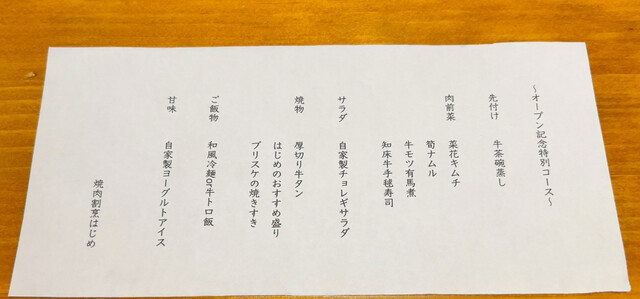 ～オープン記念特別コース～
先付け　牛茶碗蒸し
肉前菜　菜花キムチ
筍ナムル
牛モツ有馬煮
知床牛手毬寿司
サラダ　自家製チョレギサラダ
焼物　厚切り牛タン
はじめのおすすめ盛り
ブリスケの焼きすき
ご飯物　和風冷麺or牛トロ飯
甘味　自家製ヨーグルトアイス
焼肉割烹はじめ